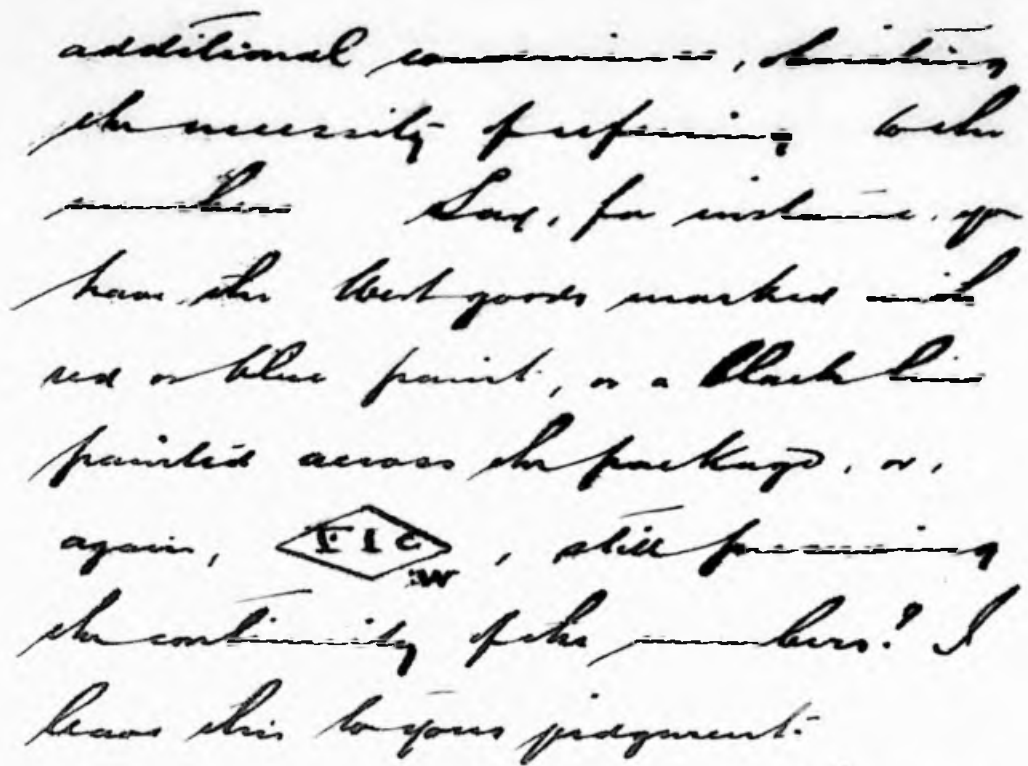 additional                , 
the necessity of referring to the
numbers Say, for instance, you
have the West goods marked with
red or blue paint, or a black line
painted across the package, or,
again, F I C W , still preserving
the continuity of the numbers? I
leave this to your judgment.